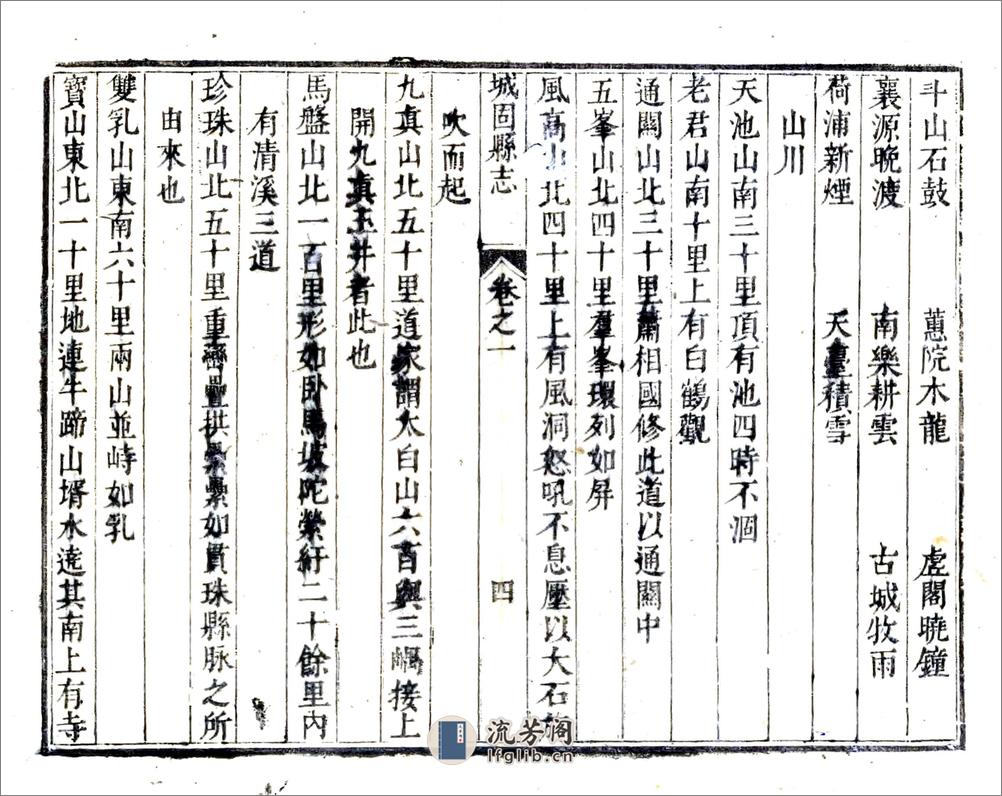 斗山石鼓 蕙院木龍 虛閣曉鐘
襄源晚渡 南樂耕雲 古城牧雨
荷浦新煙 天臺積雪
山川
天池山南三十里頂有池四時不涸
老君山南十里上有白鶴觀
通關山北三十里蕭相國修此道以通關中
五峯山北四十里羣峯環列如屏
風高山北四十里上有風洞怒吼不息壓以大石
城固縣志 卷之一 四
吹而起
九真山北五十里道家謂太白山六百與三嵎接上
開九真玉井者此也
馬盤山北一百里形如卧馬坡陀縈紆二十餘里內
有清溪三道
珍珠山北五十里重巒疊拱纍纍如貫珠縣脉之所
由來也
雙乳山東南六十里兩山並峙如乳
寶山東北一十里地連牛蹄山壻水遶其南上有寺
流芳閣
lfglib.cn